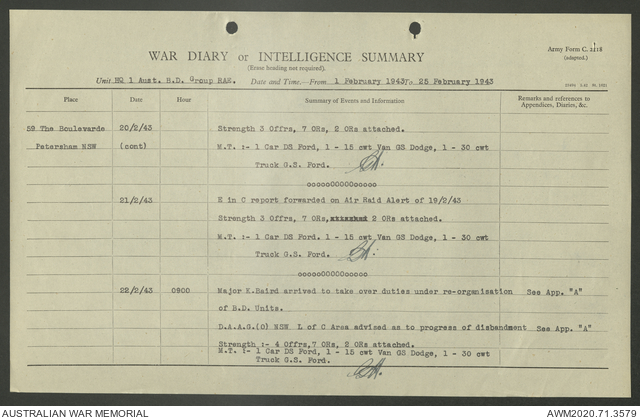 Army Form C. 2118
(adapted.)
WAR DIARY or INTELLIGENCE SUMMARY
(Erase heading not required).
Unit HQ 1 Aust. B.D. Group RAE. Date and Time.—From 1 February 1943 To 28 February 1943
Place Date Hour Summary of Events and Information Remarks and references to Appendices, Diaries, &c.
59 The Boulevarde 20/2/43 Strength 3 Offrs, 7 ORs, 2 ORs attached.
Petersham NSW (cont) M.T. :- 1 Car DS Ford, 1 - 15 cwt Van GS Dodge, 1 - 30 cwt
Truck G.S. Ford.
ooooo00000ooooo
21/2/43 E in C report forwarded on Air Raid Alert of 19/2/43
Strength 3 Offrs, 7 ORs, 2 ORs attached.
M.T. :- 1 Car DS Ford. 1 - 15 cwt Van GS Dodge, 1 - 30 cwt
Truck G.S. Ford.
ooooo00000ooooo
22/2/43 0900 Major K.Baird arrived to take over duties under re-organisation See App. "A"
of B.D. Units.
D.A.A.G.(O) NSW L of C Area advised as to progress of disbandment See App. "A"
Strength :- 4 Offrs, 7 ORs, 2 ORs attached.
M.T. :- 1 Car DS Ford, 1 - 15 cwt Van GS Dodge, 1 - 30 cwt
Truck G.S. Ford.
AUSTRALIAN WAR MEMORIAL AWM2020.71.3579